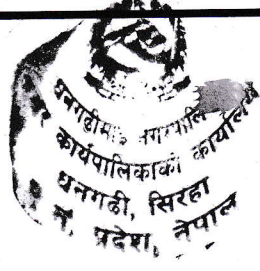 धनगढीमाई नगरपालि
कार्यपालिकाको कार्यालय
धनगढी, सिरहा
प्रदेश, नेपाल